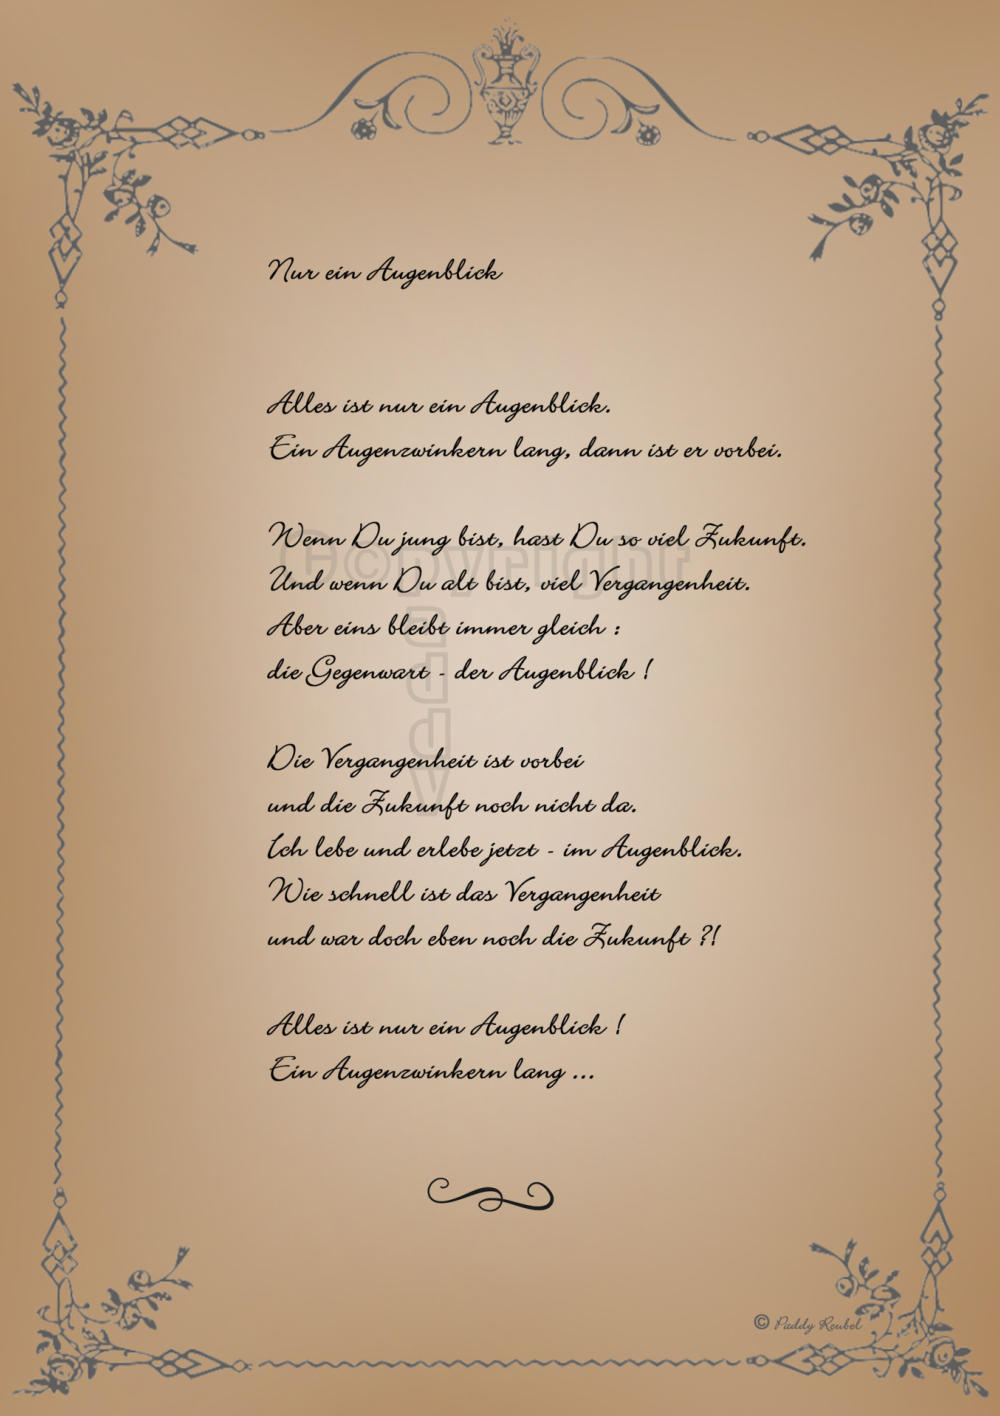 Nur ein Augenblick
Alles ist nur ein Augenblick.
Ein Augenzwinkern lang, dann ist er vorbei.
Wenn Du jung bist, hast Du so viel Zukunft.
Und wenn Du alt bist, viel Vergangenheit.
Aber eins bleibt immer gleich :
die Gegenwart - der Augenblick !
Die Vergangenheit ist vorbei
und die Zukunft noch nicht da.
Ich lebe und erlebe jetzt - im Augenblick.
Wie schnell ist das Vergangenheit
und war doch eben noch die Zukunft ?!
Alles ist nur ein Augenblick !
Ein Augenzwinkern lang ...
© Paddy Reubel